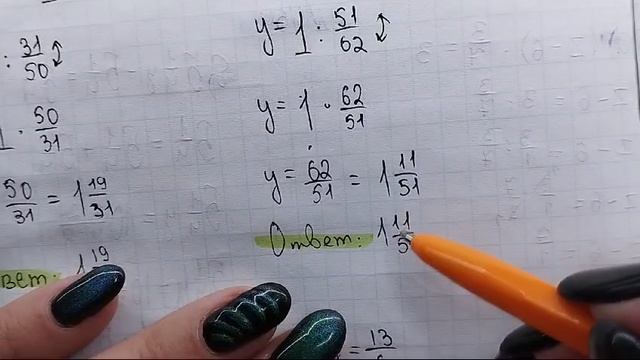 : 31/50
1 · 50/31
50/31 = 1 19/31
вет: 1 19
y = 1 : 51/62
y = 1 · 62/51
y = 62/51 = 1 11/51
Ответ: 1 11/5
= 13